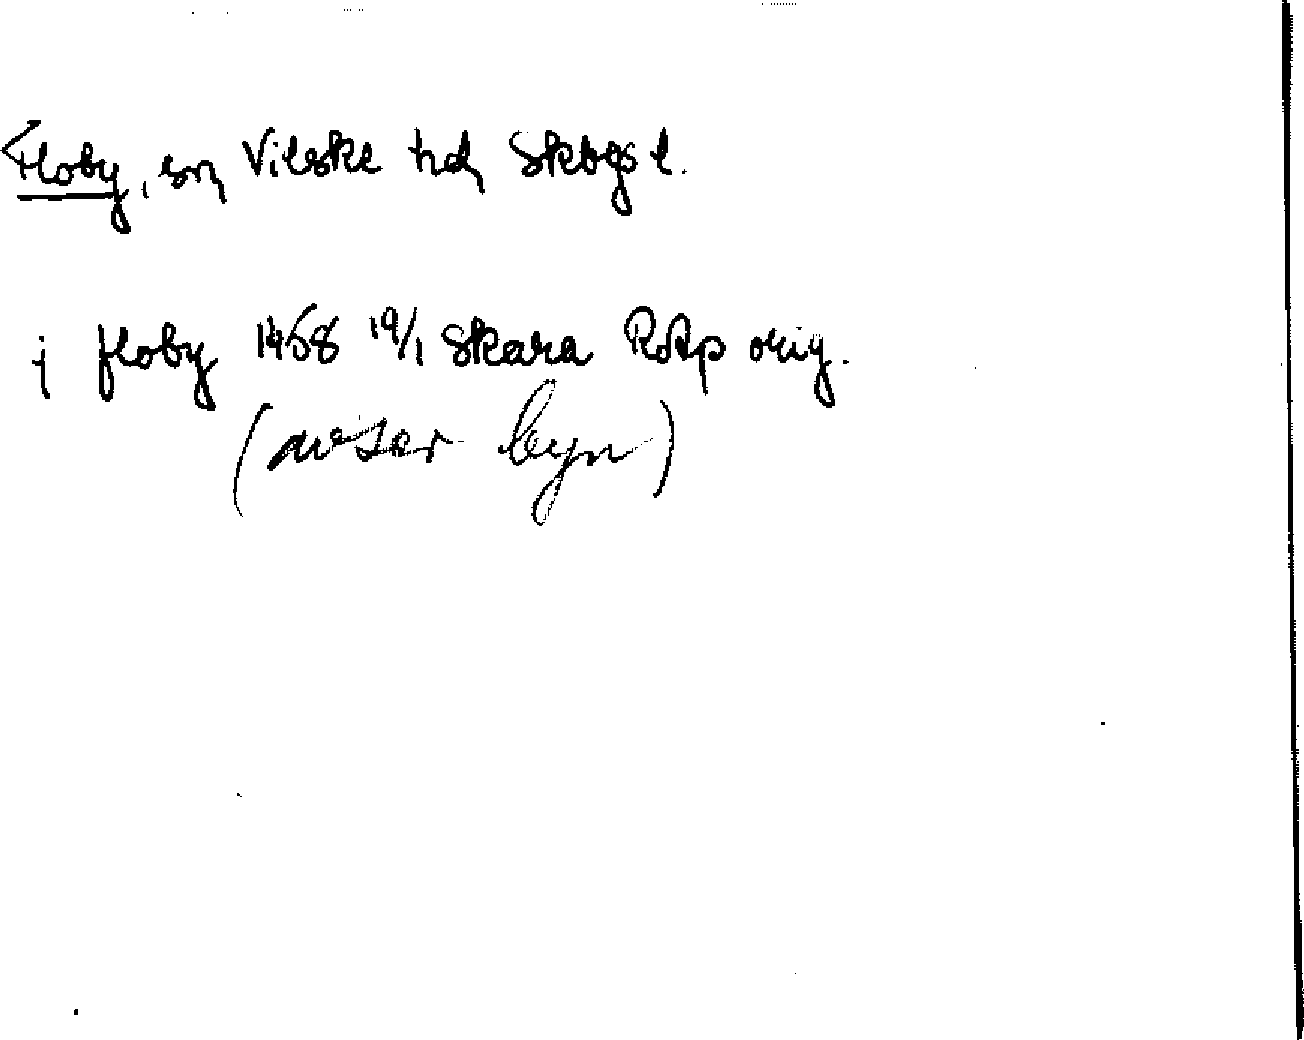 Floby, sn, Vilske hd, Skbgs l.
j floby 1458 19/1 Skara RAp orig.
(avser byn)